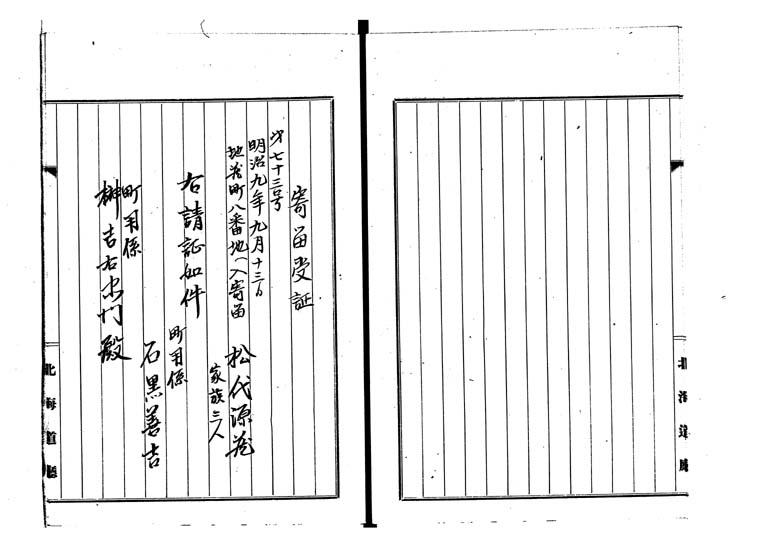 寄留受証
第七十三号
明治九年九月十三日
地蔵町八番地へ入寄留
松代源蔵
家族三人
右請証如件
町用係
石黒善吉
町用係
榊吉右衛門殿
北海道廳
北海道廳